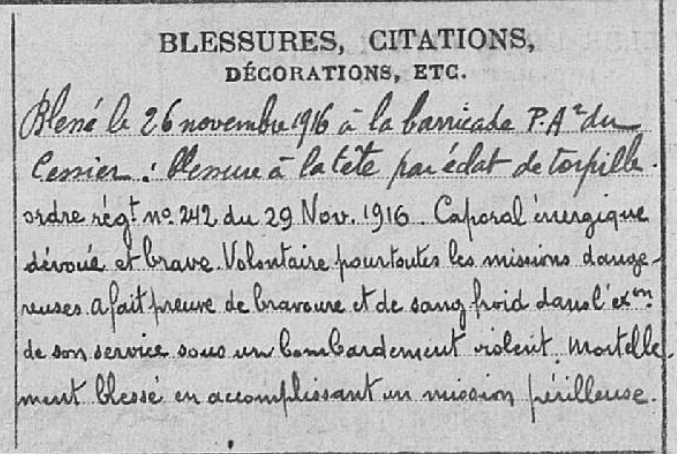 BLESSURES, CITATIONS,
DÉCORATIONS, ETC.
Blessé le 26 novembre 1916 à la barricade P.A² du
Cessier : blessure à la tête par éclat de torpille.
ordre régt. nº 242 du 29 Nov. 1916. Caporal énergique
dévoué et brave. Volontaire pour toutes les missions dange-
reuses a fait preuve de bravoure et de sang froid dans l'exon
de son service sous un bombardement violent. Mortelle-
ment blessé en accomplissant un mission périlleuse.